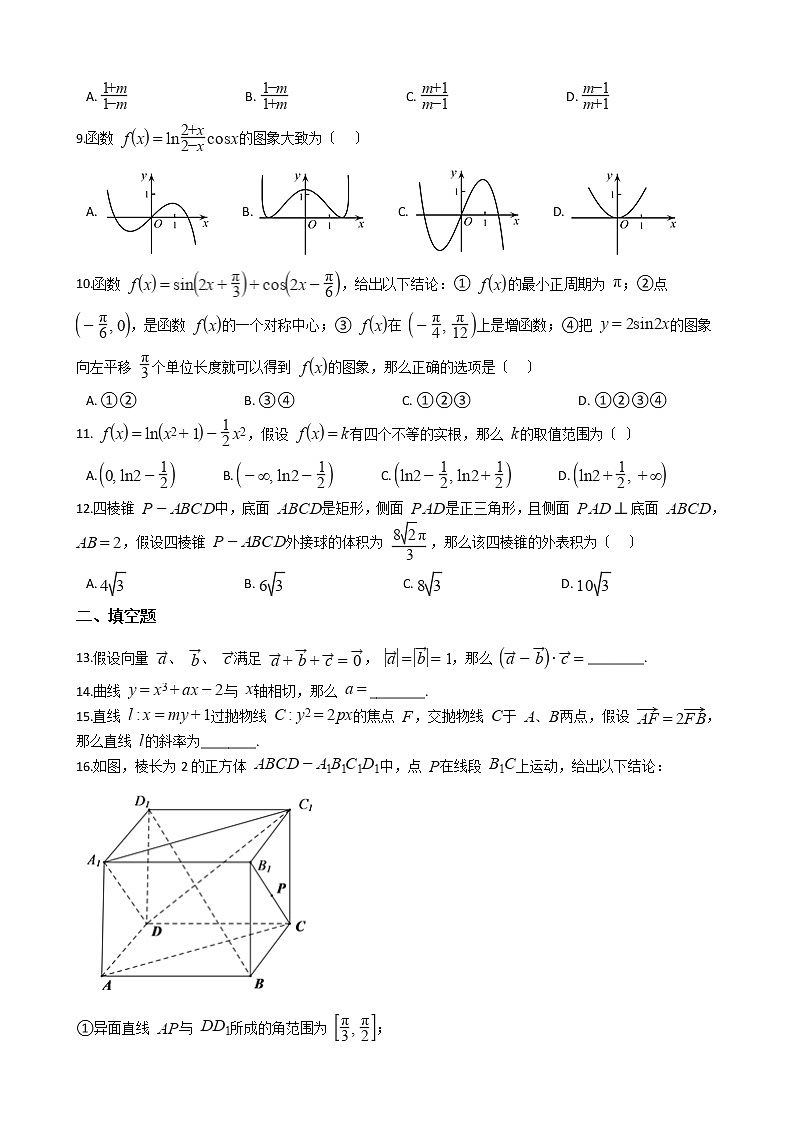 A. \frac{1+m}{1-m} B. \frac{1-m}{1+m} C. \frac{m+1}{m-1} D. \frac{m-1}{m+1}
9.函数 f(x)=ln\frac{2+x}{2-x}cosx的图象大致为〔 〕
A. y 1 O 1 x B. y 1 O 1 x C. y 1 O 1 x D. y 1 O 1 x
10.函数 f(x)=sin(2x+\frac{π}{3})+cos(2x-\frac{π}{6}),给出以下结论:① f(x)的最小正周期为 π;②点
(-\frac{π}{6},0),是函数 f(x)的一个对称中心;③ f(x)在 (-\frac{π}{4},\frac{π}{12})上是增函数;④把 y=2sin2x的图象
向左平移 \frac{π}{3}个单位长度就可以得到 f(x)的图象,那么正确的选项是〔 〕
A. ①② B. ③④ C. ①②③ D. ①②③④
11. f(x)=ln(x²+1)-\frac{1}{2}x²,假设 f(x)=k有四个不等的实根,那么 k的取值范围为〔 〕
A.(0,ln2-\frac{1}{2}) B.(-∞,ln2-\frac{1}{2}) C.(ln2-\frac{1}{2},ln2+\frac{1}{2}) D.(ln2+\frac{1}{2},+∞)
12.四棱锥 P-ABCD中,底面 ABCD是矩形,侧面 PAD是正三角形,且侧面 PAD⊥底面 ABCD,
AB=2,假设四棱锥 P-ABCD外接球的体积为 \frac{8\sqrt{2}π}{3},那么该四棱锥的外表积为〔 〕
A. 4√3 B. 6√3 C. 8√3 D. 10√3
二、填空题
13.假设向量 \vec{a}、 \vec{b}、 \vec{c}满足 \vec{a}+\vec{b}+\vec{c}=\vec{0}, |\vec{a}|=|\vec{b}|=1,那么 (\vec{a}-\vec{b})·\vec{c}=________.
14.曲线 y=x³+ax-2与 x轴相切,那么 a=________.
15.直线 l:x=my+1过抛物线 C:y²=2px的焦点 F,交抛物线 C于 A、B两点,假设 \overrightarrow{AF}=2\overrightarrow{FB},
那么直线 l的斜率为________.
16.如图,棱长为 2 的正方体 ABCD-A₁B₁C₁D₁中,点 P在线段 B₁C上运动,给出以下结论:
D₁ C₁
A₁ B₁
P
D C
A B
①异面直线 AP与 DD₁所成的角范围为 [\frac{π}{3},\frac{π}{2}];